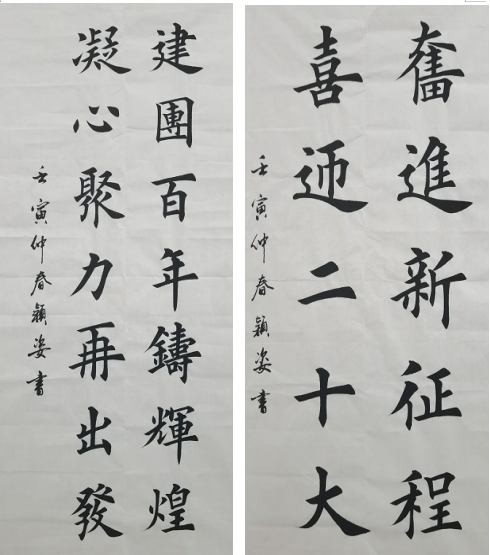 奮進新征程
喜迎二十大
壬寅仲春穎姿書
建團百年鑄輝煌
凝心聚力再出發
壬寅仲春穎姿書